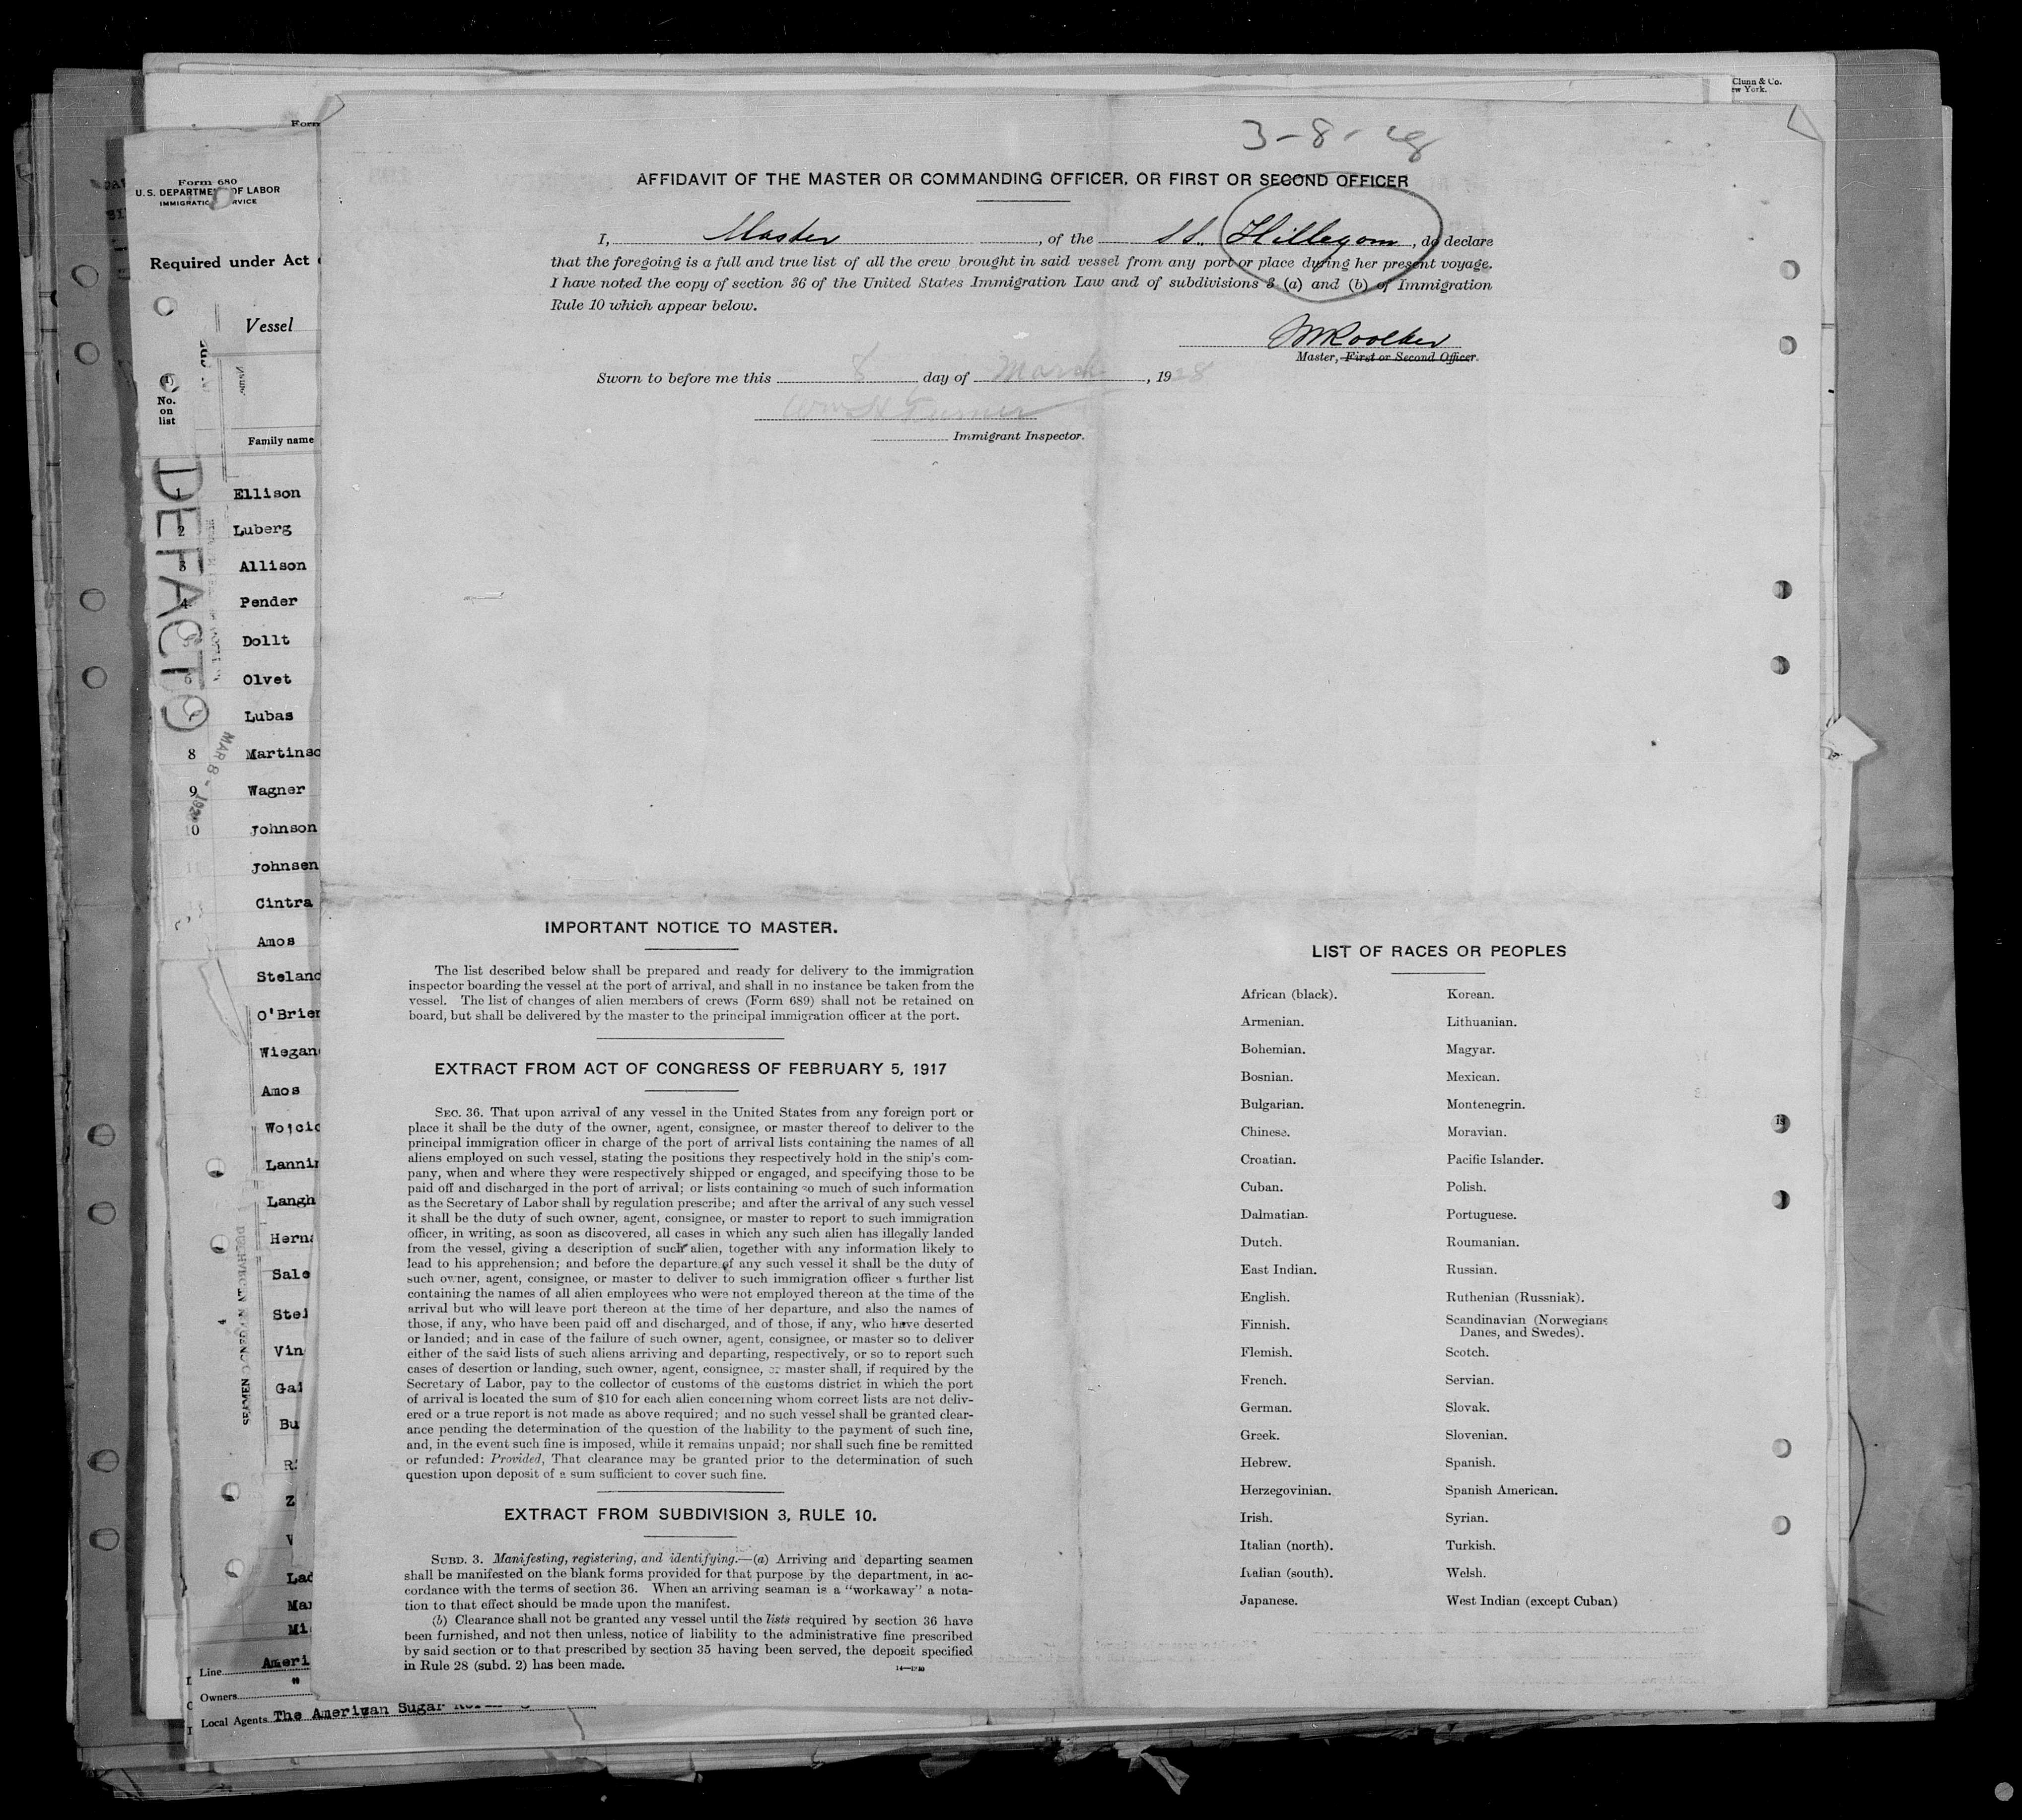 Clunn & Co.
New York.
Form
Form 680
U.S. DEPARTMENT OF LABOR
IMMIGRATION SERVICE
Required under Act
Vessel
No.
on
list
Family name
DEFACTO
MAR 8 -
1 Ellison
2 Luberg
3 Allison
4 Pender
Dollt
Olvet
Lubas
8 Martinso
9 Wagner
10 Johnson
Johnsen
Cintra
Amos
Steland
O'Brien
Wiegan
Amos
Wojcic
Lannin
Langh
Herna
Sale
Stei
Vin
Gai
Bu
Z
V
Lad
Mar
Mi
Line Ameri
Owners "
Local Agents The Ameriwan Sugar
3-8-28
AFFIDAVIT OF THE MASTER OR COMMANDING OFFICER, OR FIRST OR SECOND OFFICER
I, Master, of the SS. Hillegom, do declare
that the foregoing is a full and true list of all the crew brought in said vessel from any port or place during her present voyage.
I have noted the copy of section 36 of the United States Immigration Law and of subdivisions 3 (a) and (b) of Immigration
Rule 10 which appear below.
Master, First or Second Officer.
Sworn to before me this 8 day of March, 1928
Wm H Turner
Immigrant Inspector.
IMPORTANT NOTICE TO MASTER.
The list described below shall be prepared and ready for delivery to the immigration
inspector boarding the vessel at the port of arrival, and shall in no instance be taken from the
vessel. The list of changes of alien members of crews (Form 689) shall not be retained on
board, but shall be delivered by the master to the principal immigration officer at the port.
EXTRACT FROM ACT OF CONGRESS OF FEBRUARY 5, 1917
SEC. 36. That upon arrival of any vessel in the United States from any foreign port or
place it shall be the duty of the owner, agent, consignee, or master thereof to deliver to the
principal immigration officer in charge of the port of arrival lists containing the names of all
aliens employed on such vessel, stating the positions they respectively hold in the ship's com-
pany, when and where they were respectively shipped or engaged, and specifying those to be
paid off and discharged in the port of arrival; or lists containing so much of such information
as the Secretary of Labor shall by regulation prescribe; and after the arrival of any such vessel
it shall be the duty of such owner, agent, consignee, or master to report to such immigration
officer, in writing, as soon as discovered, all cases in which any such alien has illegally landed
from the vessel, giving a description of such alien, together with any information likely to
lead to his apprehension; and before the departure of any such vessel it shall be the duty of
such owner, agent, consignee, or master to deliver to such immigration officer a further list
containing the names of all alien employees who were not employed thereon at the time of the
arrival but who will leave port thereon at the time of her departure, and also the names of
those, if any, who have been paid off and discharged, and of those, if any, who have deserted
or landed; and in case of the failure of such owner, agent, consignee, or master so to deliver
either of the said lists of such aliens arriving and departing, respectively, or so to report such
cases of desertion or landing, such owner, agent, consignee, or master shall, if required by the
Secretary of Labor, pay to the collector of customs of the customs district in which the port
of arrival is located the sum of $10 for each alien concerning whom correct lists are not deliv-
ered or a true report is not made as above required; and no such vessel shall be granted clear-
ance pending the determination of the question of the liability to the payment of such fine,
and, in the event such fine is imposed, while it remains unpaid; nor shall such fine be remitted
or refunded: Provided, That clearance may be granted prior to the determination of such
question upon deposit of a sum sufficient to cover such fine.
EXTRACT FROM SUBDIVISION 3, RULE 10.
SUBD. 3. Manifesting, registering, and identifying.—(a) Arriving and departing seamen
shall be manifested on the blank forms provided for that purpose by the department, in ac-
cordance with the terms of section 36. When an arriving seaman is a "workaway" a nota-
tion to that effect should be made upon the manifest.
(b) Clearance shall not be granted any vessel until the lists required by section 36 have
been furnished, and not then unless, notice of liability to the administrative fine prescribed
by said section or to that prescribed by section 35 having been served, the deposit specified
in Rule 28 (subd. 2) has been made.
LIST OF RACES OR PEOPLES
African (black).
Armenian.
Bohemian.
Bosnian.
Bulgarian.
Chinese.
Croatian.
Cuban.
Dalmatian.
Dutch.
East Indian.
English.
Finnish.
Flemish.
French.
German.
Greek.
Hebrew.
Herzegovinian.
Irish.
Italian (north).
Italian (south).
Japanese.
Korean.
Lithuanian.
Magyar.
Mexican.
Montenegrin.
Moravian.
Pacific Islander.
Polish.
Portuguese.
Roumanian.
Russian.
Ruthenian (Russniak).
Scandinavian (Norwegians
Danes, and Swedes).
Scotch.
Servian.
Slovak.
Slovenian.
Spanish.
Spanish American.
Syrian.
Turkish.
Welsh.
West Indian (except Cuban)